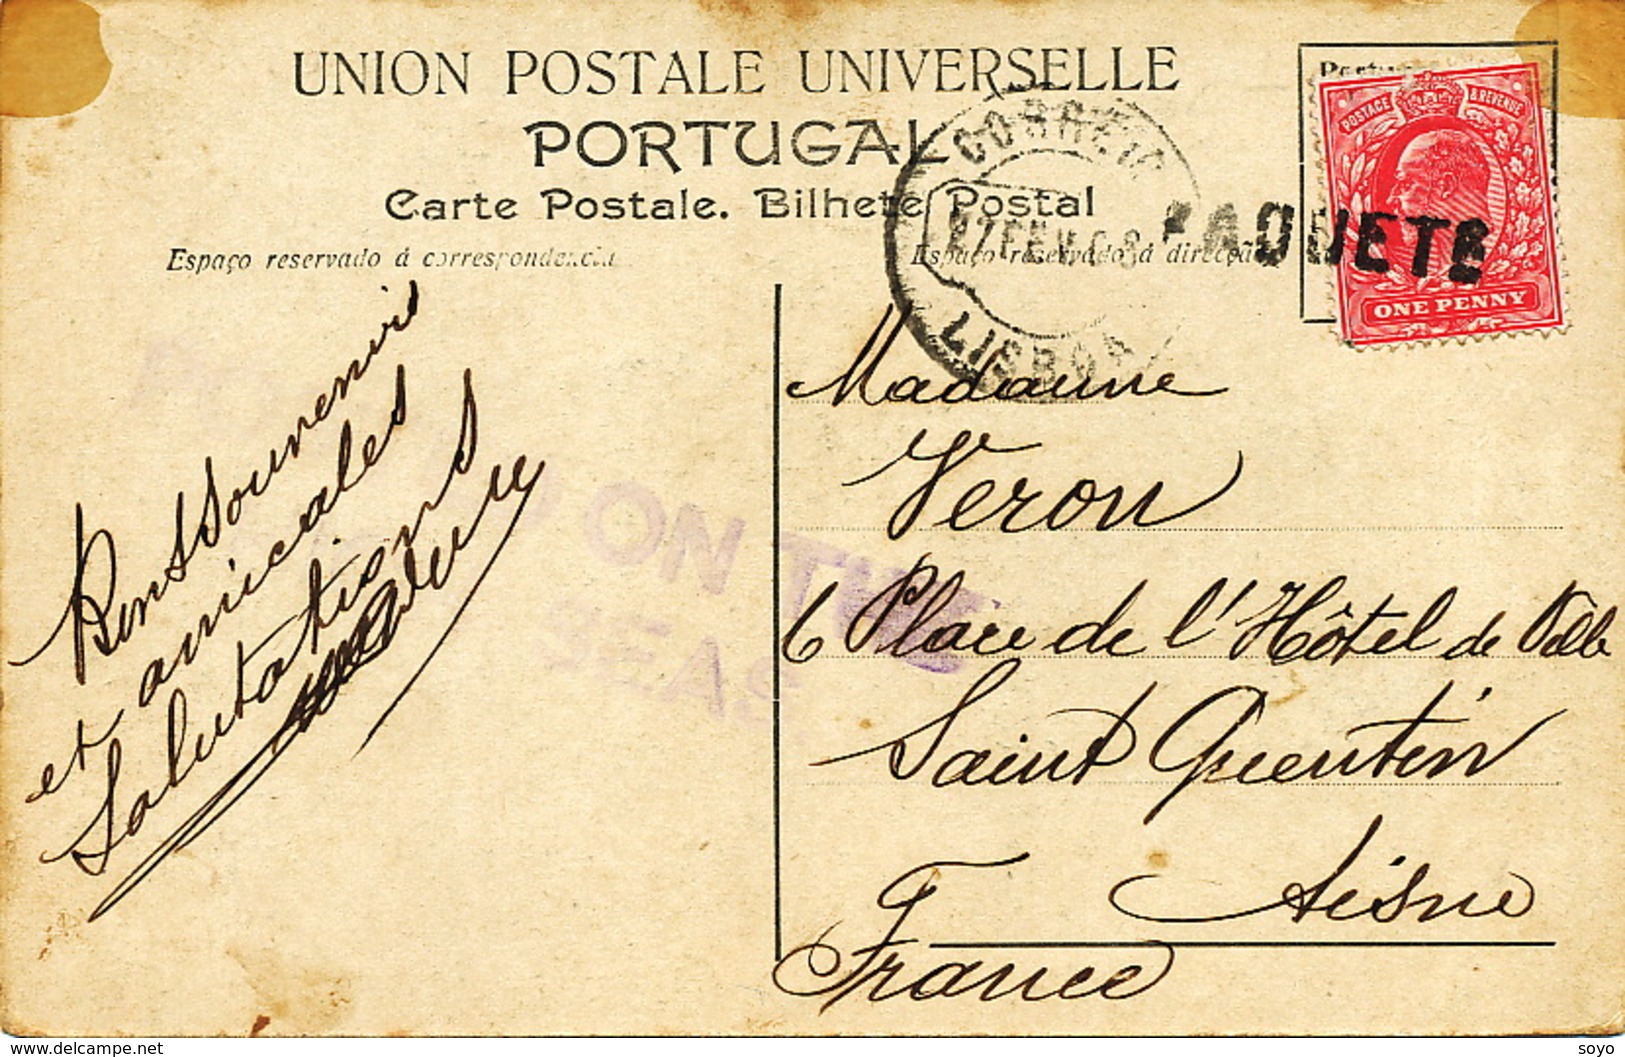 UNION POSTALE UNIVERSELLE
PORTUGAL
Carte Postale. Bilhete Postal
Espaço reservado á correspondencia
Espaço reservado á direcção
CORREIO
27 FEV 08
LISBOA
PAQUETE
POSTAGE & REVENUE
ONE PENNY
Bons Souvenirs
et amicales
Salutations
Madame
Veron
6 Place de l'Hôtel de Ville
Saint Quentin
Aisne
France
ON THE
SEAS
delcampe.net
soyo